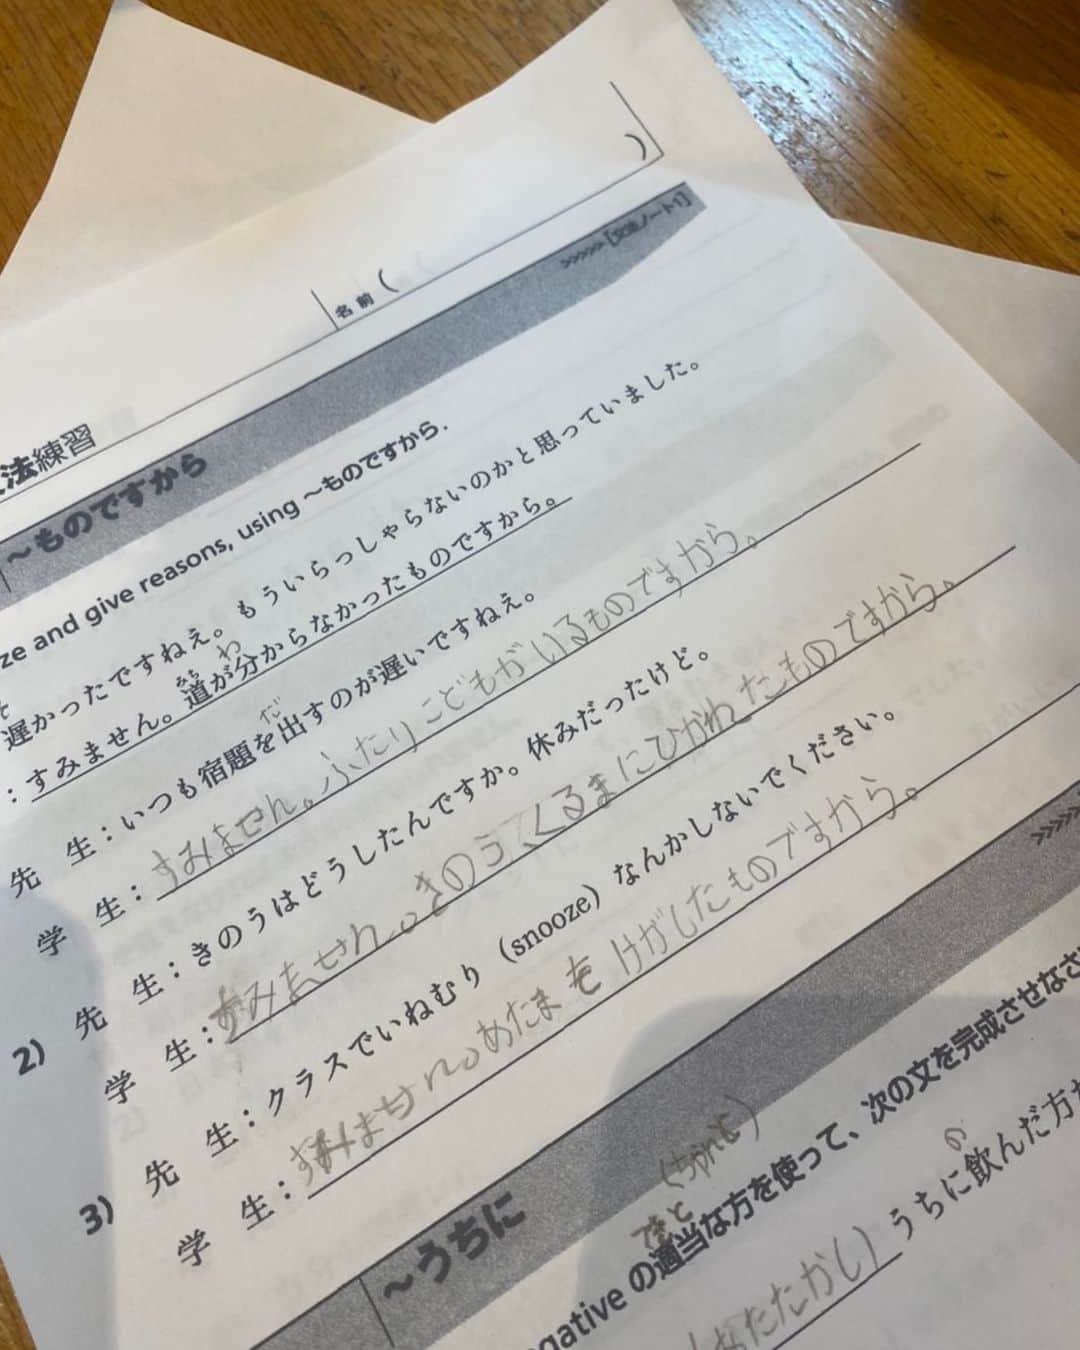 名前 ( )
法練習
～ものですから
>>>>> [文法ノート1]
ze and give reasons, using ～ものですから.
遅かったですねえ。もういらっしゃらないのかと思っていました。
みち わ
：すみません。道が分からなかったものですから。
だ
先 生：いつも宿題を出すのが遅いですねえ。
学 生：すみません。ふたりこどもがいるものですから。
2) 先 生：きのうはどうしたんですか。休みだったけど。
学 生：すみません。きのうくるまにひかれたものですから。
3) 先 生：クラスでいねむり（snooze）なんかしないでください。
学 生：すみません。あたまをけがしたものですから。
～うちに
>>>>>
てきと
gative の適当な方を使って、次の文を完成させなさ
の
あたたかい) うちに飲んだ方が